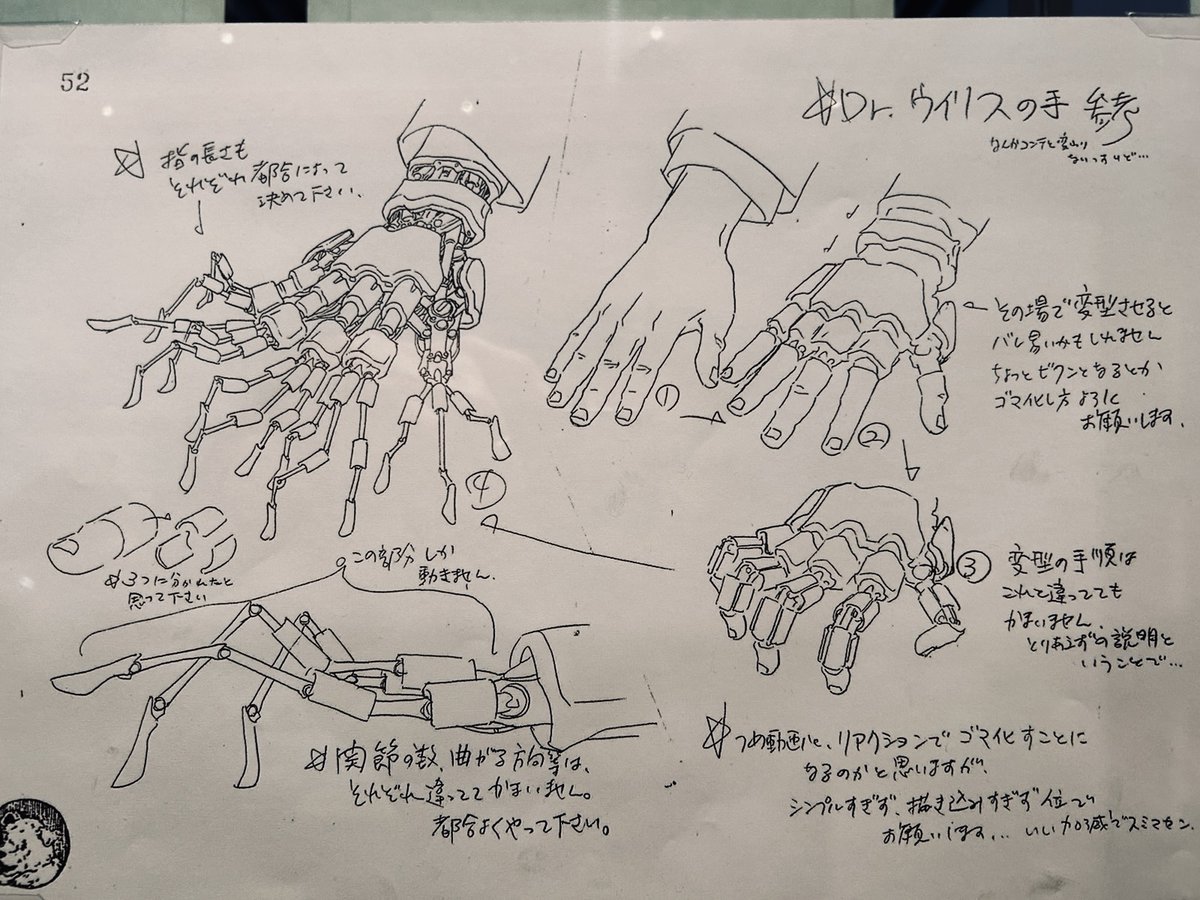 52
※Dr. ウイリスの手 参考
なんかコンテと変わり
ないっすけど…
※ 指の長さも
それぞれ都合によって
決めて下さい。
その場で変型させると
バレ易いかもしれません
ちょっとピクンとなるとか
ゴマ化し方よろしく
お願いします。
①
②
③
④
変型の手順は
これと違ってても
かまいません。
とりあえずの説明と
いうことで…
※3つに分かれたと
思って下さい
この部分しか
動きません。
※関節の数、曲がる方向等は、
それぞれ違ってて かまいません。
都合よくやって下さい。
※つめ動画と、リアクションで ゴマ化すことに
なるのかと思いますが、
シンプルすぎず、描き込みすぎず 位で
お願いします… いい加減でスミマセン.